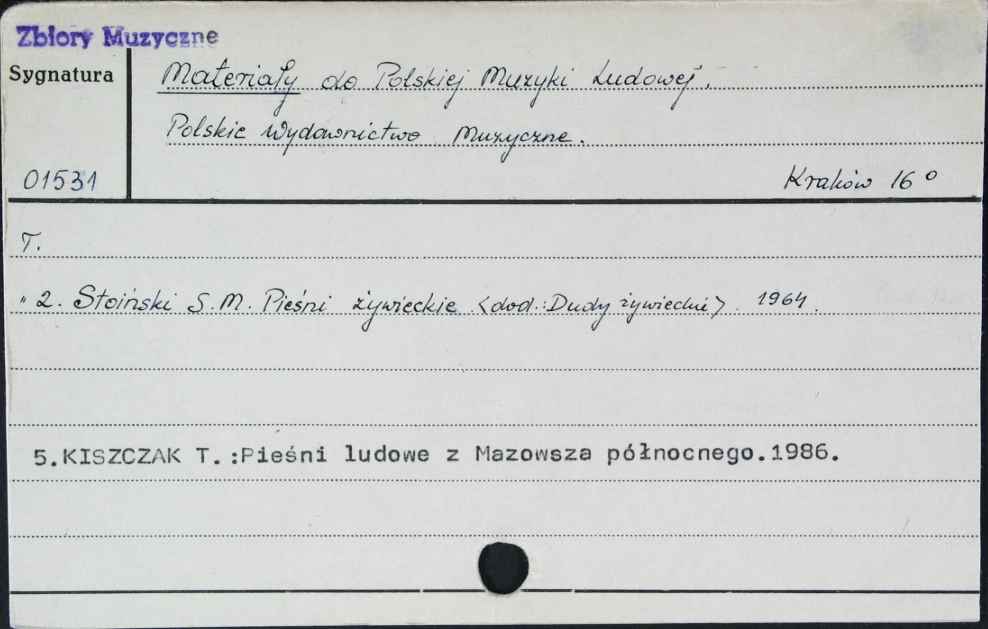 Zbiory Muzyczne
Sygnatura
Materiały do Polskiej Muzyki Ludowej.
Polskie Wydawnictwo Muzyczne.
01531
Kraków 16°
T.
" 2. Stoiński S.M. Pieśni żywieckie <dod.: Dudy żywieckie>. 1964.
5.KISZCZAK T.:Pieśni ludowe z Mazowsza północnego.1986.